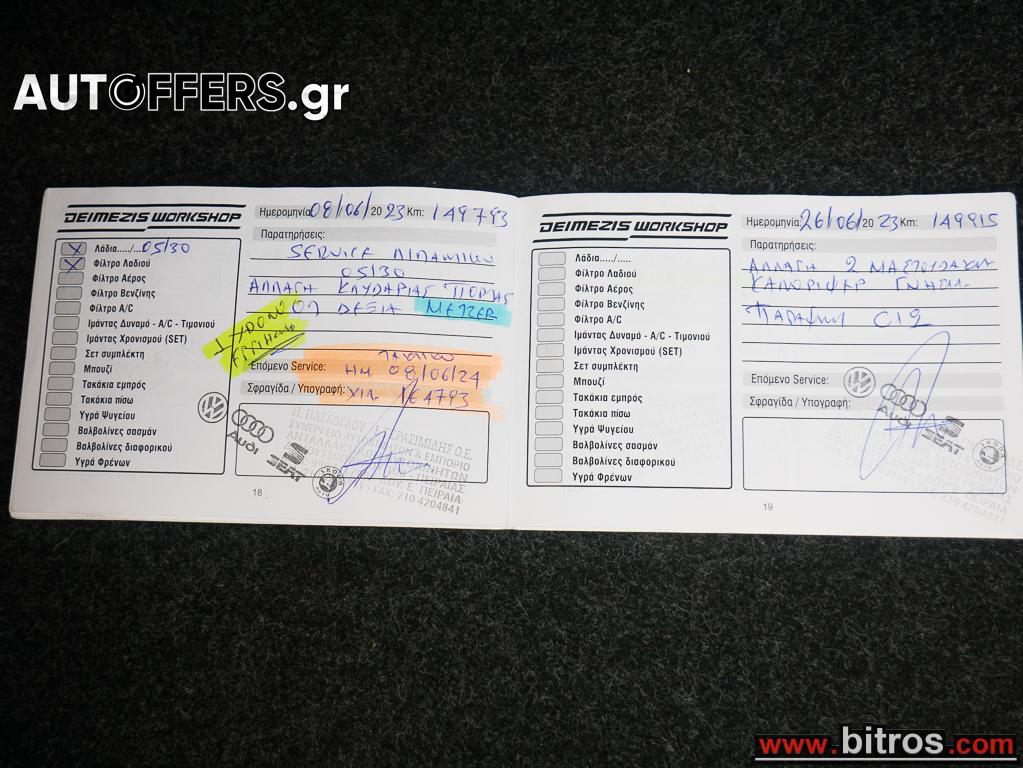 AUTOFFERS.gr
DEIMEZIS WORKSHOP
Ημερομηνία: 08/06/2023 Km: 149793
Παρατηρήσεις:
Λάδια...../... 05/30
Φίλτρο Λαδιού
Φίλτρο Αέρος
Φίλτρο Βενζίνης
Φίλτρο A/C
Ιμάντας Δυναμό - A/C - Τιμονιού
Ιμάντας Χρονισμού (SET)
Σετ συμπλέκτη
Μπουζί
Τακάκια εμπρός
Τακάκια πίσω
Υγρά Ψυγείου
Βαλβολίνες σασμάν
Βαλβολίνες διαφορικού
Υγρά Φρένων
SERVICE
05/30
ΑΛΛΑΓΗ ΚΛΥΔΑΡΙΑΣ ΠΟΡΤΑΣ
ΔΕΞΙΑ
Επόμενο Service: ΗΜ 08/06/24
Σφραγίδα / Υπογραφή: ΧΙΛ 164793
Audi
SEAT
SKODA
FAX: 210 4204841
18
DEIMEZIS WORKSHOP
Ημερομηνία: 26/06/2023 Km: 149915
Παρατηρήσεις:
Λάδια...../.....
Φίλτρο Λαδιού
Φίλτρο Αέρος
Φίλτρο Βενζίνης
Φίλτρο A/C
Ιμάντας Δυναμό - A/C - Τιμονιού
Ιμάντας Χρονισμού (SET)
Σετ συμπλέκτη
Μπουζί
Τακάκια εμπρός
Τακάκια πίσω
Υγρά Ψυγείου
Βαλβολίνες σασμάν
Βαλβολίνες διαφορικού
Υγρά Φρένων
ΑΛΛΑΓΗ 2
ΚΑΛΟΡΙΦΕΡ
C12
Επόμενο Service:
Σφραγίδα / Υπογραφή:
Audi
SEAT
19
www.bitros.com